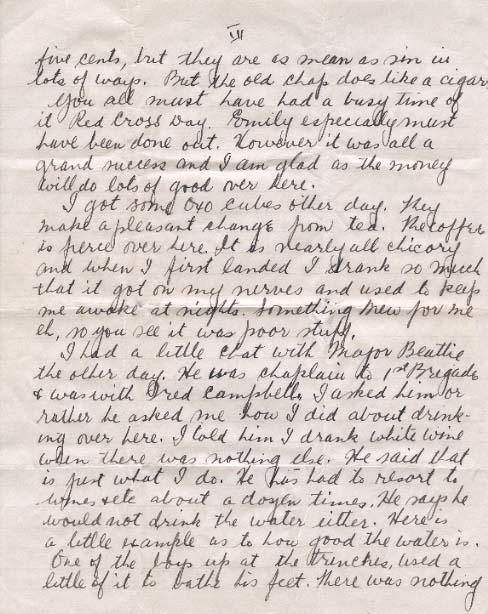 VII
five cents, but they are as mean as sin in
lots of ways. But the old chap does like a cigar,
You all must have had a busy time of
it Red Cross Day. Emily especially must
have been done out. However it was all a
grand success and I am glad as the money
will do lots of good over here.
I got some Oxo cubes other day. They
make a pleasant change from tea. The coffee
is fierce over here. It is nearly all chicory
and when I first landed I drank so much
that it got on my nerves and used to keep
me awake at nights. Something new for me
eh, so you see it was poor stuff.
I had a little chat with Major Beattie
the other day. He was chaplain to 1st Brigade
& was with Fred Campbell. I asked him or
rather he asked me how I did about drink-
ing over here. I told him I drank white wine
when there was nothing else. He said that
is just what I do. He has had to resort to
wines & etc about a dozen times. He says he
would not drink the water either. Here is
a little example as to how good the water is.
One of the boys up at the trenches, used a
little of it to bathe his feet. There was nothing